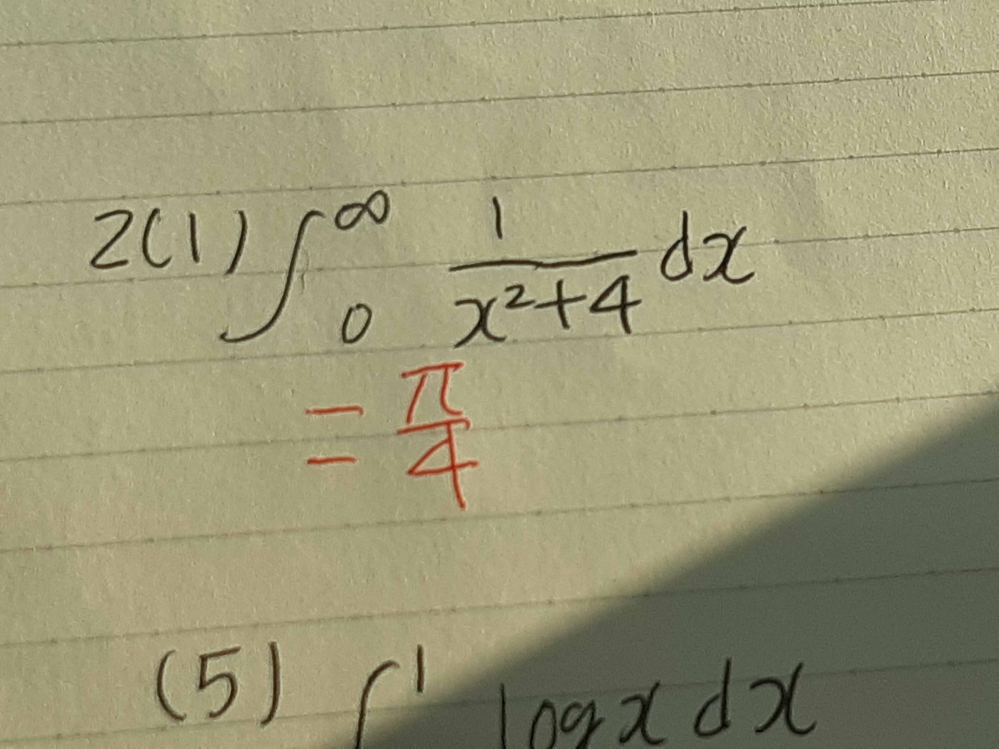 2(1) ∫₀^∞ 1/(x²+4) dx
= π/4
(5) ∫¹ log x dx